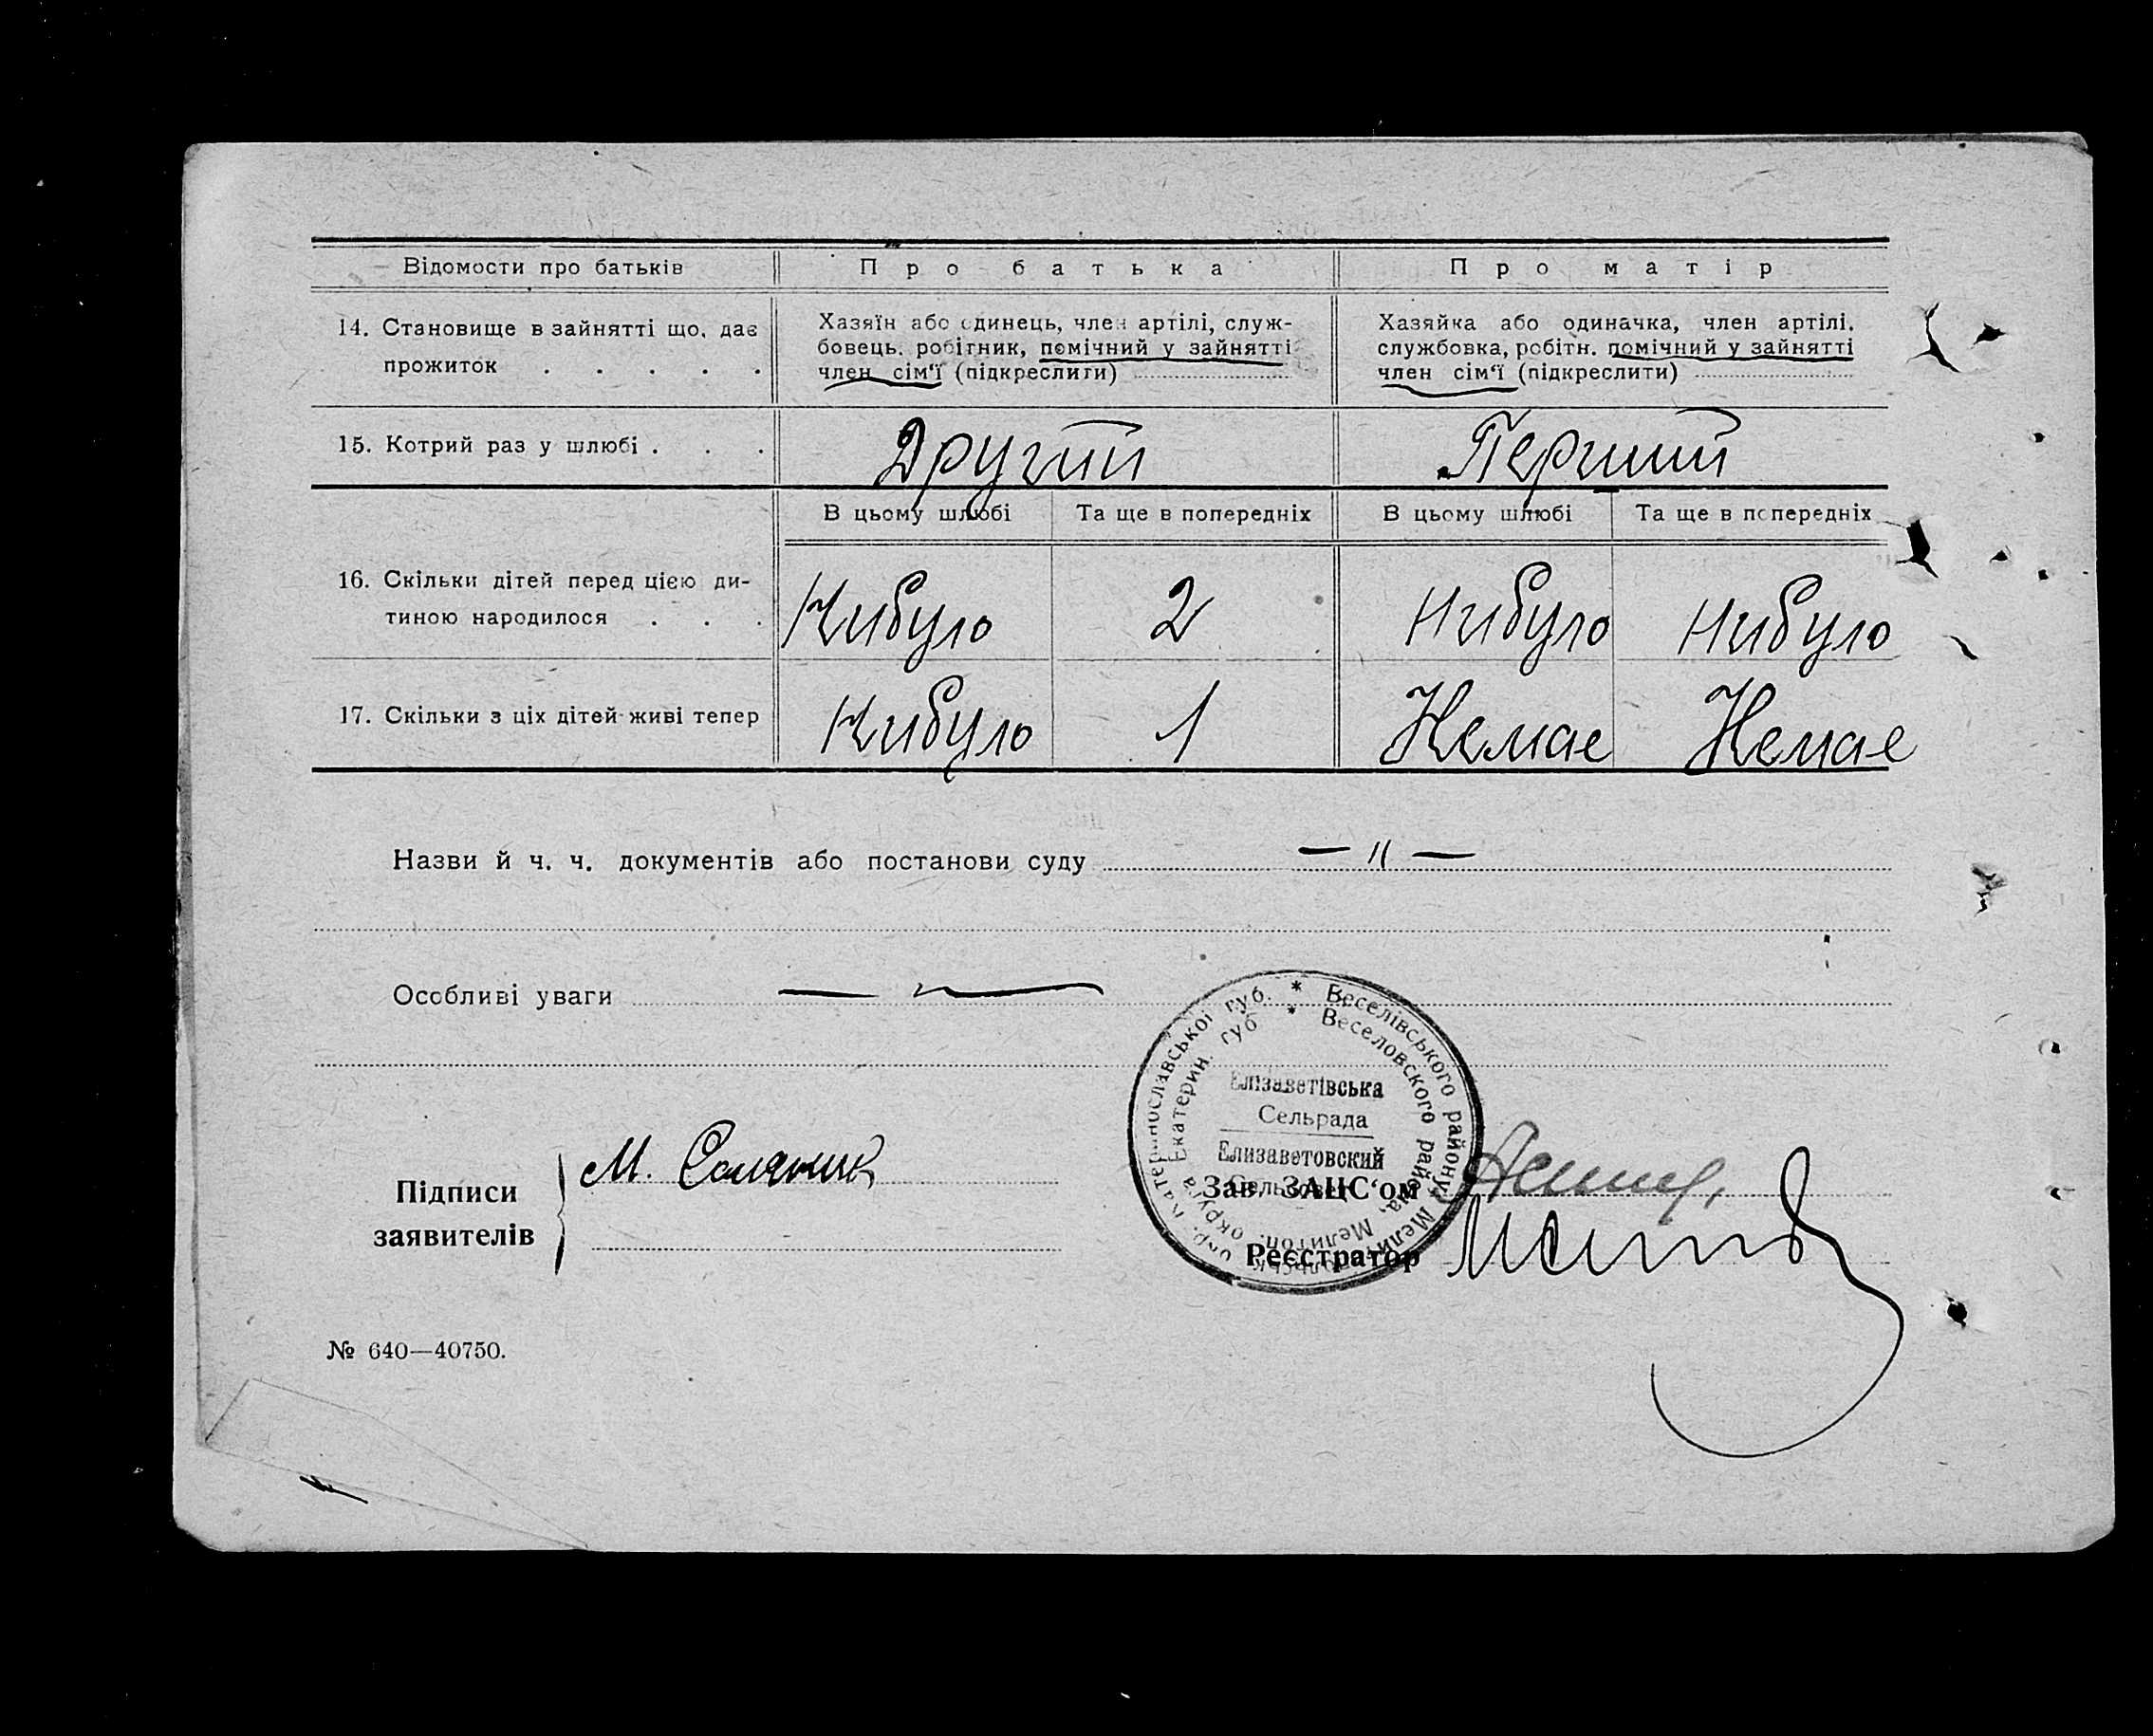 Відомости про батьків
Про батька
Про матір
14. Становище в зайнятті що, дає
прожиток . . . . .
Хазяїн або одинець, член артілі, служ-
бовець. робітник, помічний у зайнятті
член сім‘ї (підкреслити)
Хазяйка або одиначка, член артілі.
службовка, робітн. помічний у зайнятті
член сім‘ї (підкреслити)
15. Котрий раз у шлюбі . . .
Другий
Перший
В цьому шлюбі
Та ще в попередніх
В цьому шлюбі
Та ще в попередніх
16. Скільки дітей перед цією ди-
тиною народилося . . .
Нибуло
2
Нибуло
Нибуло
17. Скільки з ціх дітей живі тепер
Нибуло
1
Немае
Немае
Назви й ч. ч. документів або постанови суду — // —
Особливі уваги
* Веселівського району, Мелітопільськ. окр. Катеринославської губ.
* Веселовского района, Мелитоп. округа Екатерин. губ
Єлізаветівська
Сельрада
Елизаветовский
Сельсовет
Підписи
заявителів
М. Соляник
Зав. ЗАЦС‘ом
Реєстратор
№ 640—40750.